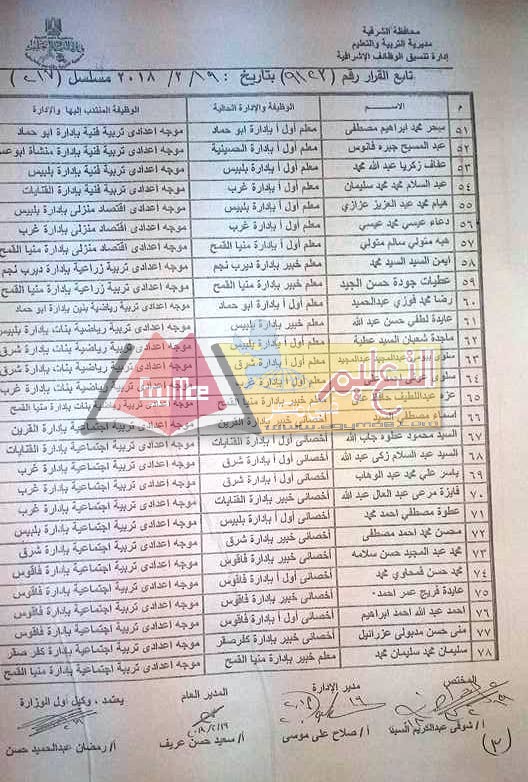 محافظة الشرقية
مديرية التربية والتعليم
إدارة تنسيق الوظائف الإشرافية
تابع القرار رقم (٩١٤٢) بتاريخ : ١٩ / ٢ / ٢٠١٨ مسلسل
م الاسم الوظيفة والإدارة الحالية الوظيفة المنتدب إليها والإدارة
٥١ سحر محمد ابراهيم مصطفى معلم أول أ بإدارة ابو حماد موجه اعدادى تربية فنية بإدارة ابو حماد
٥٢ عبد المسيح جبره فانوس معلم أول أ بإدارة الحسينية موجه اعدادى تربية فنية بإدارة منشأة ابو عمر
٥٣ عفاف زكريا عبد الله محمد معلم أول أ بإدارة بلبيس موجه اعدادى تربية فنية بإدارة بلبيس
٥٤ عبد السلام محمد محمد سليمان معلم أول أ بإدارة غرب موجه اعدادى تربية فنية بإدارة القنايات
٥٥ هيام محمد عبد العزيز عزازي معلم أول أ بإدارة بلبيس موجه اعدادى اقتصاد منزلى بإدارة بلبيس
٥٦ دعاء عيسي محمد عيسي معلم أول أ بإدارة غرب موجه اعدادى اقتصاد منزلى بإدارة غرب
٥٧ هبه متولي سالم متولي معلم أول أ بإدارة منيا القمح موجه اعدادى اقتصاد منزلى بإدارة منيا القمح
٥٨ ايمن السيد السيد محمد معلم خبير بإدارة ديرب نجم موجه اعدادى تربية زراعية بإدارة ديرب نجم
٥٩ عطيات جودة حسن الجيد معلم خبير بإدارة منيا القمح موجه اعدادى تربية زراعية بإدارة منيا القمح
٦٠ رضا محمد فوزي عبدالحميد معلم أول أ بإدارة ابو حماد موجه اعدادى تربية رياضية بنين بإدارة ابو حماد
٦١ عايدة لطفي حسن عبد الله معلم خبير بإدارة بلبيس موجه اعدادى تربية رياضية بنات بإدارة بلبيس
٦٢ ماجدة شعبان السيد عطية معلم خبير بإدارة شرق موجه اعدادى تربية رياضية بنات بإدارة شرق
٦٣ سلوى عبدالمجيد معلم أول أ بإدارة شرق بإدارة شرق
٦٤ سلوى بإدارة غرب
٦٥ عزة عبداللطيف معلم خبير بإدارة منيا القمح بنات بإدارة منيا القمح
٦٦ أسماء مصطفى موجه اعدادى تربية اجتماعية بإدارة القرين
٦٧ السيد محمود عطوه جاب الله أخصائى أول أ بإدارة القنايات موجه اعدادى تربية اجتماعية بإدارة القنايات
٦٨ السيد عبد السلام زكى عبد الله أخصائى أول أ بإدارة غرب موجه اعدادى تربية اجتماعية بإدارة غرب
٦٩ ياسر علي محمد عبد الوهاب أخصائى أول أ بإدارة شرق موجه اعدادى تربية اجتماعية بإدارة شرق
٧٠ فايزة مرعى عبد العال عبد الله أخصائى خبير بإدارة القنايات موجه اعدادى تربية اجتماعية بإدارة غرب
٧١ عطوة مصطفي احمد محمد أخصائى أول أ بإدارة بلبيس موجه اعدادى تربية اجتماعية بإدارة بلبيس
٧٢ محسن محمد احمد مصطفى أخصائى خبير بإدارة شرق موجه اعدادى تربية اجتماعية بإدارة شرق
٧٣ محمد عبد المجيد حسن سلامه أخصائى خبير بإدارة فاقوس موجه اعدادى تربية اجتماعية بإدارة فاقوس
٧٤ محمد حسن قمحاوي محمد أخصائى أول أ بإدارة فاقوس موجه اعدادى تربية اجتماعية بإدارة فاقوس
٧٥ عايدة فريج عمر احمد أخصائى خبير بإدارة فاقوس موجه اعدادى تربية اجتماعية بإدارة فاقوس
٧٦ احمد عبد الله احمد ابراهيم أخصائى أول أ بإدارة فاقوس موجه اعدادى تربية اجتماعية بإدارة فاقوس
٧٧ منى حسن مدبولى عزرائيل أخصائى خبير بإدارة كفر صقر موجه اعدادى تربية اجتماعية بإدارة كفر صقر
٧٨ سليمان محمد سليمان محمد معلم خبير بإدارة منيا القمح موجه اعدادى تربية اجتماعية بإدارة منيا القمح
التعليم
المختص مدير الإدارة المدير العام يعتمد ، وكيل أول الوزارة
أ/ شوقى عبدالكريم السيد أ/ صلاح على موسى أ/ سعيد حسن عريف أ/ رمضان عبدالحميد حسن
(٢)